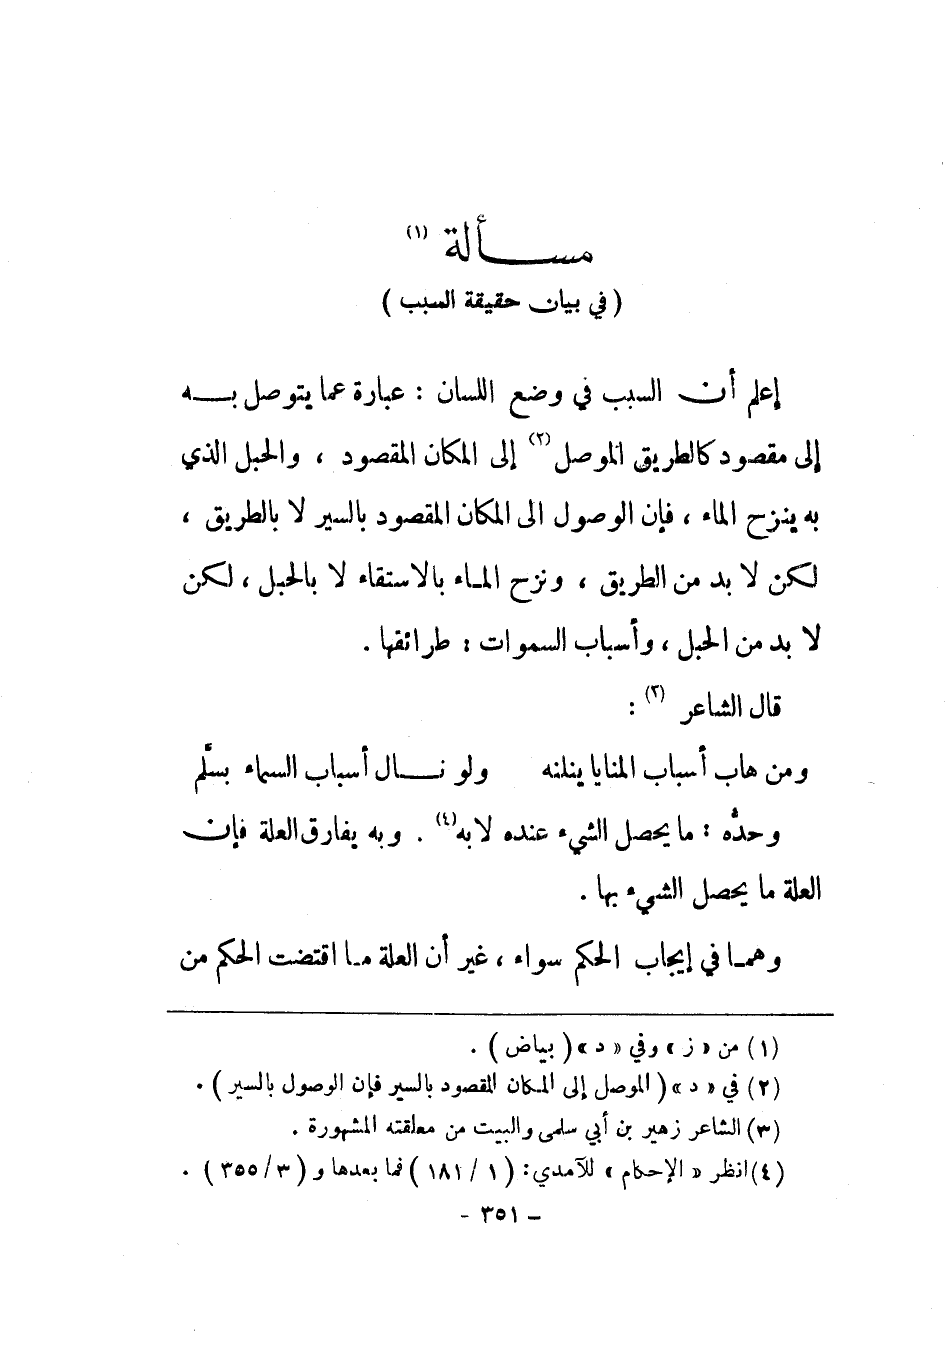 مسألة (١)
( في بيان حقيقة السبب )
إعلم أن السبب في وضع اللسان : عبارة عما يتوصل به
إلى مقصود كالطريق الموصل (٢) إلى المكان المقصود ، والحبل الذي
به ينزح الماء ، فإن الوصول الى المكان المقصود بالسير لا بالطريق ،
لكن لا بد من الطريق ، ونزح الماء بالاستقاء لا بالحبل ، لكن
لا بد من الحبل ، وأسباب السموات : طرائقها .
قال الشاعر (٣) :
ومن هاب أسباب المنايا ينلنه ولو نال أسباب السماء بسلَّم
وحدُّه : ما يحصل الشيء عنده لا به (٤) . وبه يفارق العلة فإن
العلة ما يحصل الشيء بها .
وهما في إيجاب الحكم سواء ، غير أن العلة ما اقتضت الحكم من
(١) من « ز » وفي « د » ( بياض ) .
(٢) في « د » ( الموصل إلى المكان المقصود بالسير فإن الوصول بالسير ) .
(٣) الشاعر زهير بن أبي سلمى والبيت من معلقته المشهورة .
(٤) انظر « الإحكام » للآمدي : ( ١ / ١٨١ ) فما بعدها و ( ٣ / ٣٥٥ ) .
- ٣٥١ -